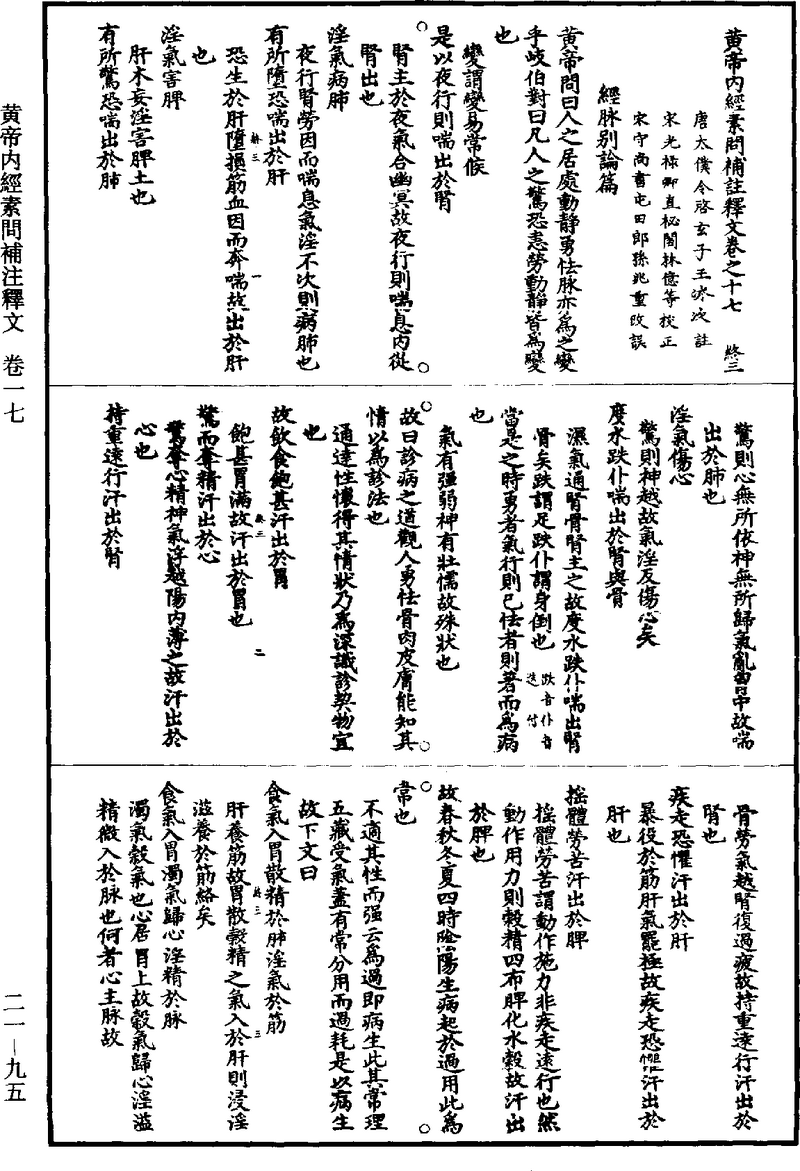 黄帝内經素問補註釋文卷之十七 終三
唐太僕令啓玄子王冰次註
宋光祿卿直秘閣林億等校正
宋守尚書屯田郎孫兆重改誤
經脉别論篇
黄帝問曰人之居處動靜勇怯脉亦爲之變
乎岐伯對曰凡人之驚恐恚勞動靜皆爲變
也
變謂變易常候
是以夜行則喘出於腎
腎主於夜氣合幽冥故夜行則喘息内從
腎出也
淫氣病肺
夜行腎勞因而喘息氣淫不次則病肺也
有所墮恐喘出於肝
恐生於肝墮損筋血因而奔喘故出於肝
也
淫氣害脾
肝木妄淫害脾土也
有所驚恐喘出於肺
驚則心無所依神無所歸氣亂胷中故喘
出於肺也
淫氣傷心
驚則神越故氣淫反傷心矣
度水跌仆喘出於腎與骨
濕氣通腎骨腎主之故度水跌仆喘出腎
骨矣跌謂足跌仆謂身倒也 跌音迭仆音付
當是之時勇者氣行則已怯者則著而爲病
也
氣有强弱神有壯懦故殊狀也
故曰診病之道觀人勇怯骨肉皮膚能知其
情以爲診法也
通達性懷得其情狀乃爲深識診契物宜
也
故飲食飽甚汗出於胃
飽甚胃滿故汗出於胃也
驚而奪精汗出於心
驚奪心精神氣浮越陽内薄之故汗出於
心也
持重遠行汗出於腎
骨勞氣越腎復過疲故持重遠行汗出於
腎也
疾走恐懼汗出於肝
暴役於筋肝氣罷極故疾走恐懼汗出於
肝也
摇體勞苦汗出於脾
摇體勞苦謂動作施力非疾走遠行也然
動作用力則穀精四布脾化水穀故汗出
於脾也
故春秋冬夏四時陰陽生病起於過用此爲
常也
不適其性而强云爲過即病生此其常理
五藏受氣蓋有常分用而過耗是以病生
故下文曰
食氣入胃散精於肝淫氣於筋
肝養筋故胃散穀精之氣入於肝則浸淫
滋養於筋絡矣
食氣入胃濁氣歸心淫精於脉
濁氣穀氣也心居胃上故穀氣歸心淫溢
精微入於脉也何者心主脉故
黄帝内經素問補注釋文 卷一七
二一—九五